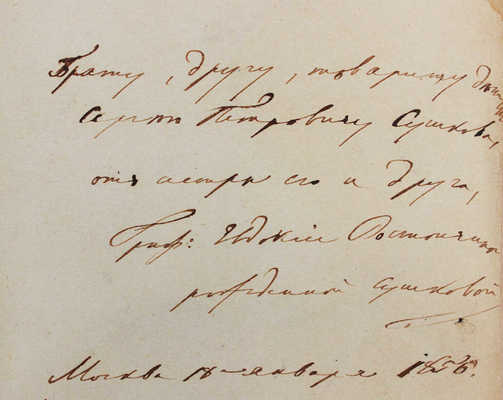 Брату, другу, товарищу
Сергею Петровичу Сушкову,
отъ сестры его и друга,
Граф: Евдокіи Ростопчиной
рожденной Сушковой
Москва 18 января 1856.